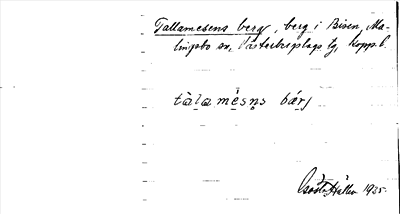 Tallamesens berg, berg i Bisen, Ma-
lingsbo sn, Västerbergslags tg, Kopp. l.
tàlamèsṇs bárj
Gösta Hallin 1935.